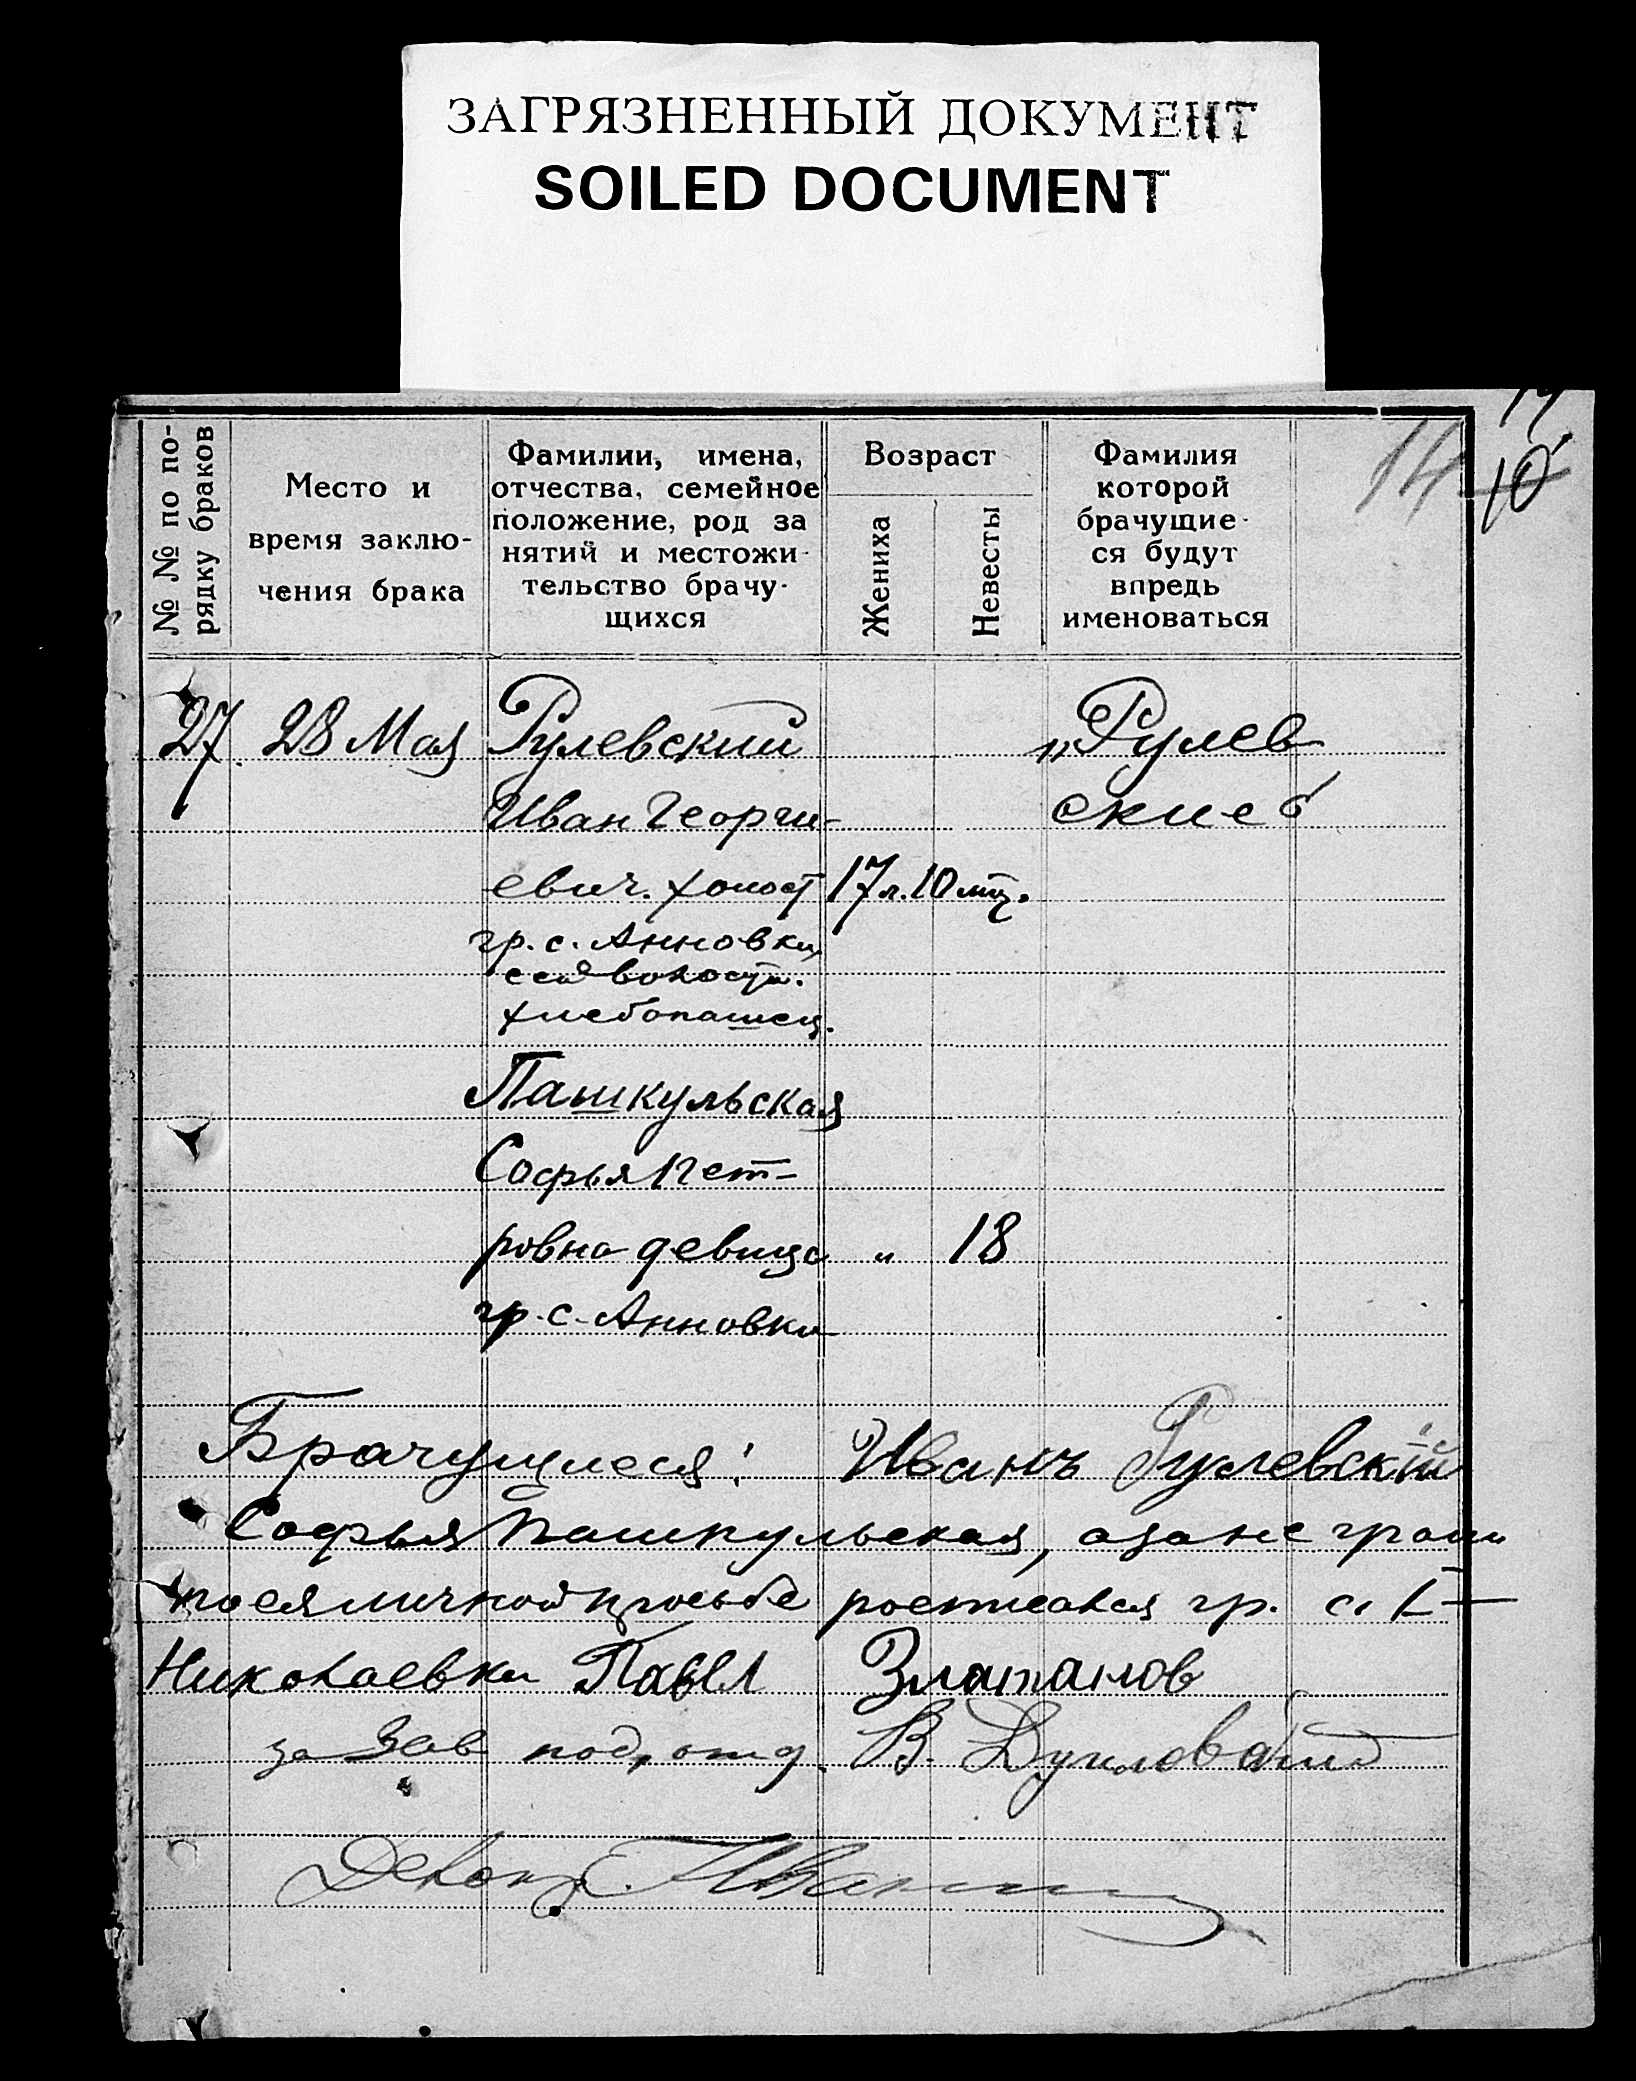 ЗАГРЯЗНЕННЫЙ ДОКУМЕНТ
SOILED DOCUMENT
14 10
№ № по по-
рядку браков
Место и
время заклю-
чения брака
Фамилии, имена,
отчества, семейное
положение, род за
нятий и местожи
тельство брачу-
щихся
Возраст
Жениха
Невесты
Фамилия
которой
брачущие-
ся будут
впредь
именоваться
27 28 Мая Рулевский „Рулев
Иван Георги- ские"
евич. холост 17 л. 10 мц.
гр. с. Анновки,
сей волости.
хлебопашец.
Пашкульская
Софья Пет-
ровна девица „ 18
гр. с. Анновки
Брачущиеся: Иванъ Рулевскій
Софья Пашкульская, а за не грам
личной просьбе гр. с. I
Николаевки Павел Златанов
за Зав под, отд. В.
Делопр.